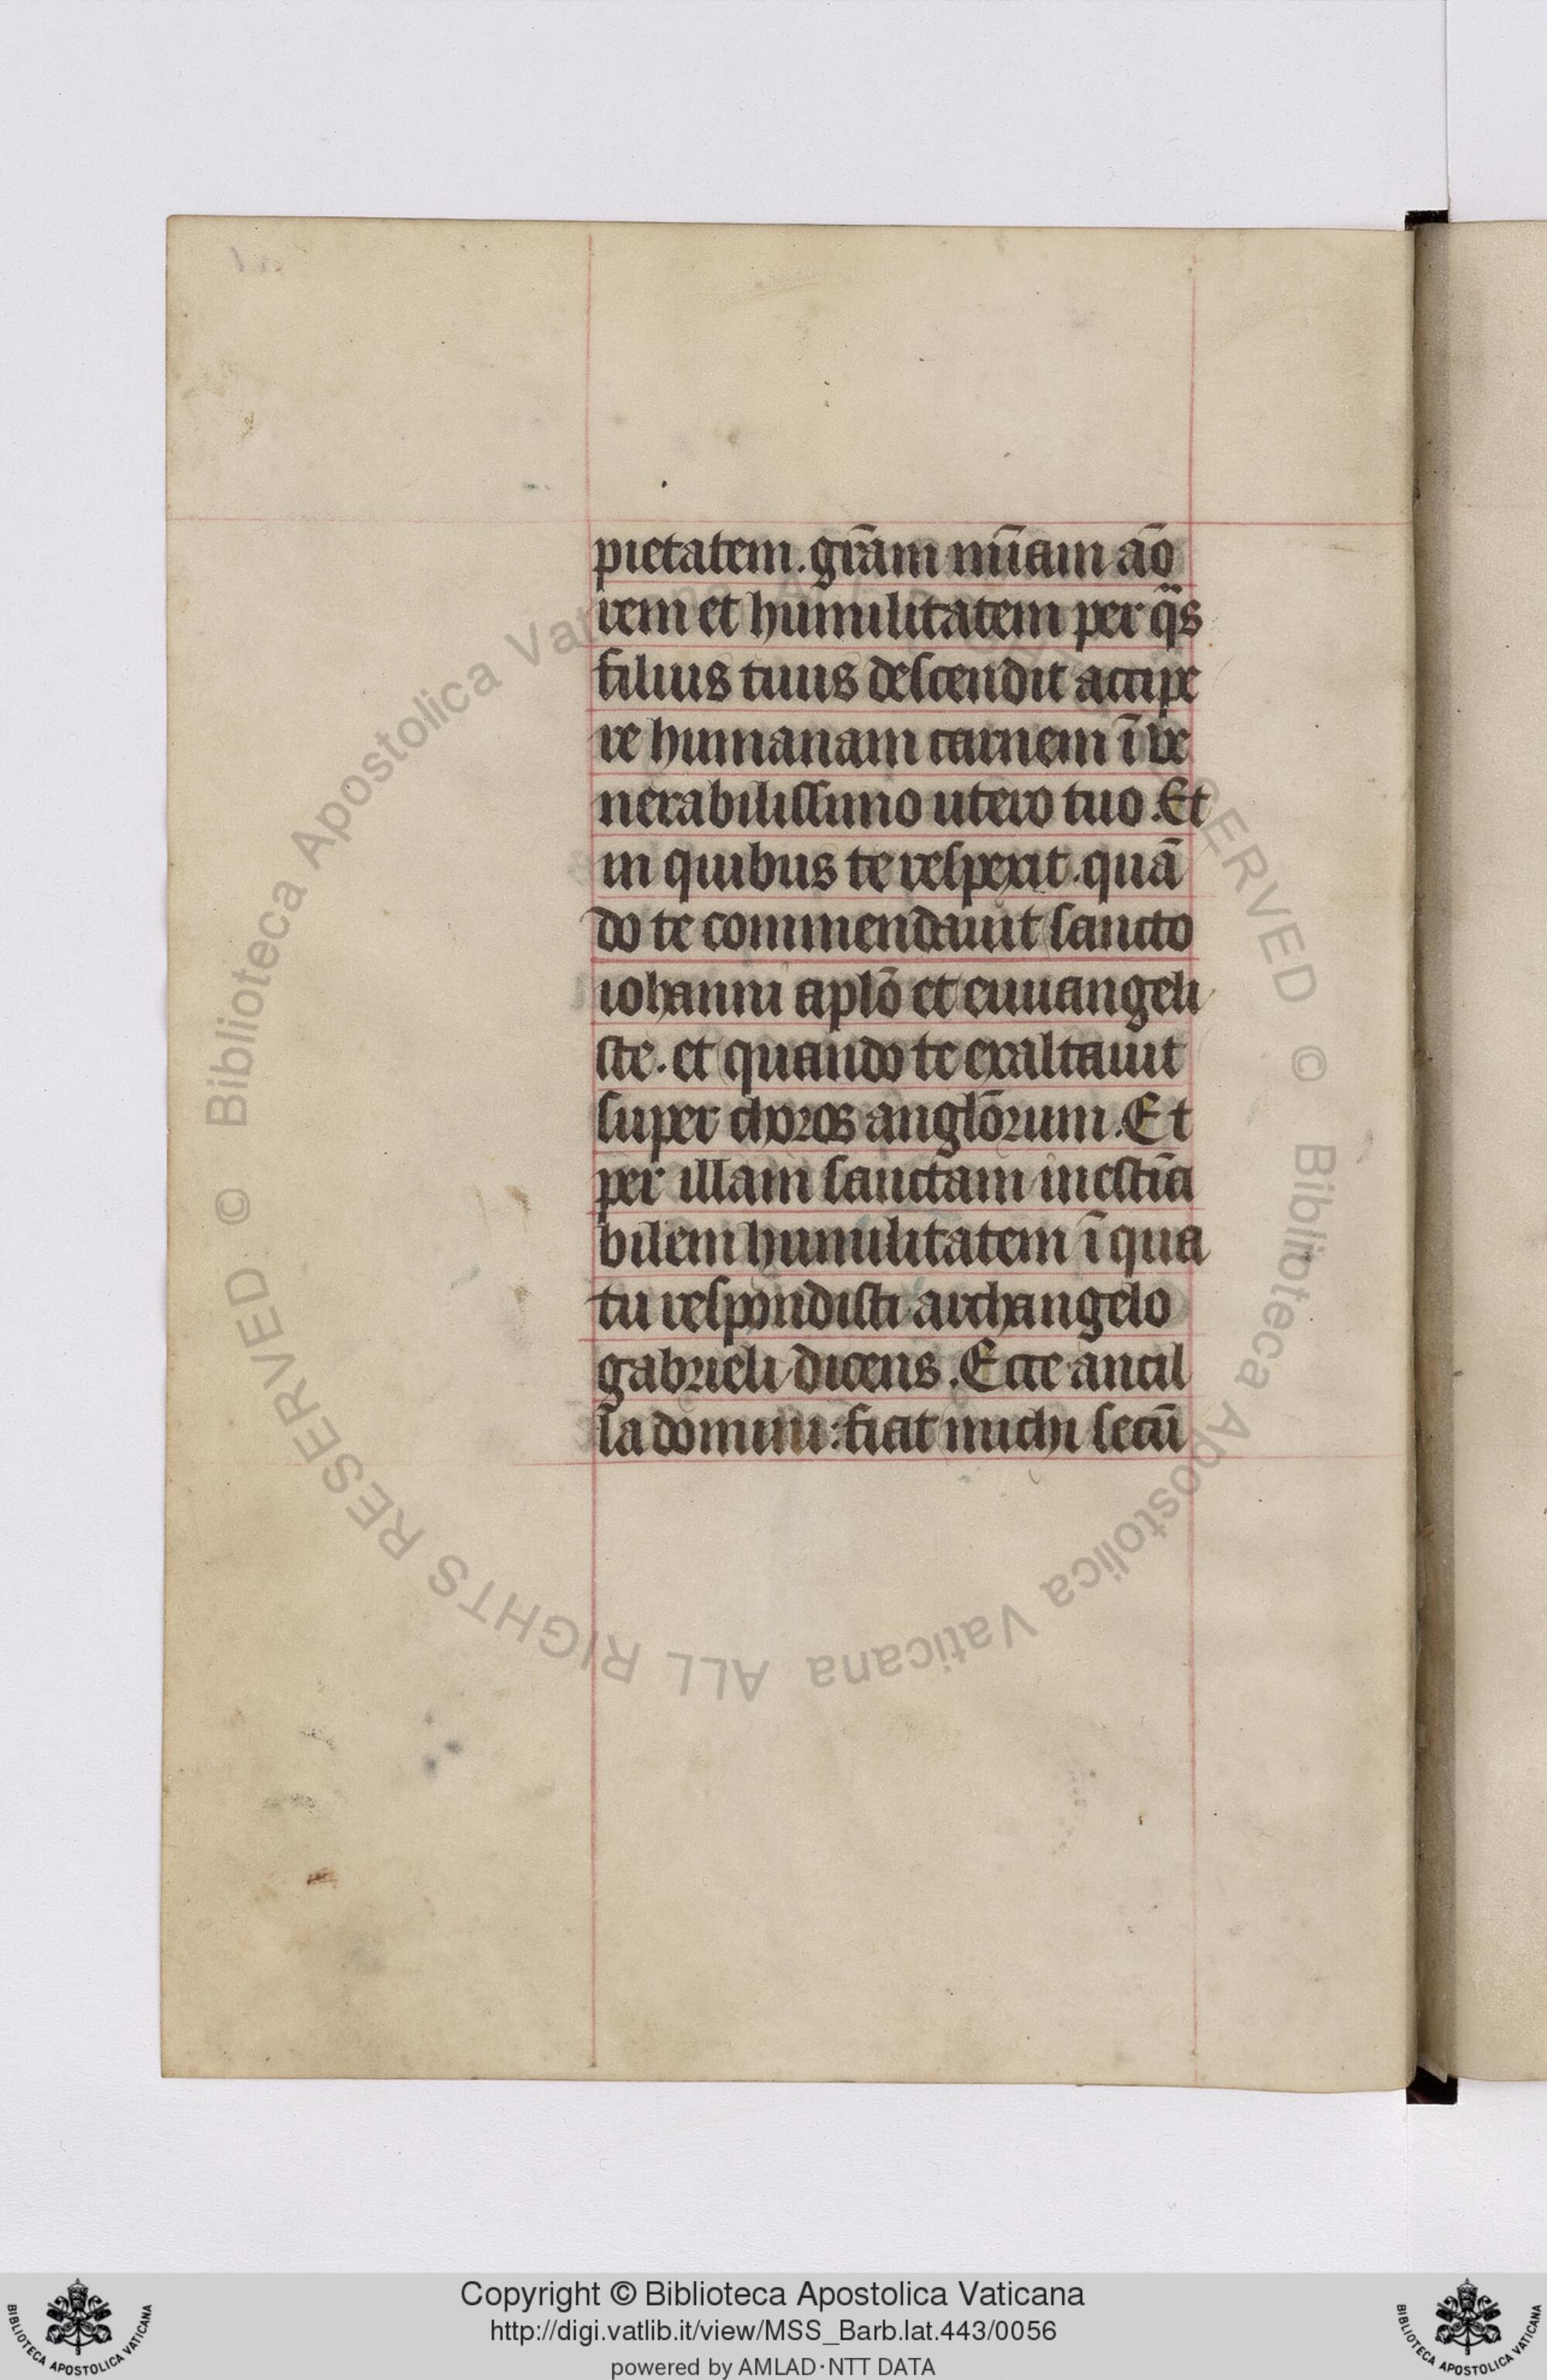 pietatem. grām mīam āo
rem et humilitatem per q̄s
filius tuus descendit accipe
re humanam carnem ī ve
nerabilissimo utero tuo. Et
in quibus te respexit. quā
do te commendauit sancto
iohanni aplō et euuangeli
ste. et quando te exaltauit
super choros anglōrum. Et
per illam sanctam inestīa
bilem humilitatem ī qua
tu respondisti archangelo
gabrieli dicens. Ecce ancil
la domini: fiat michi secū
© Biblioteca Apostolica Vaticana ALL RIGHTS RESERVED © Biblioteca Apostolica Vaticana ALL RIGHTS RESERVED
Copyright © Biblioteca Apostolica Vaticana
http://digi.vatlib.it/view/MSS_Barb.lat.443/0056
powered by AMLAD·NTT DATA
BIBLIOTECA APOSTOLICA VATICANA
BIBLIOTECA APOSTOLICA VATICANA